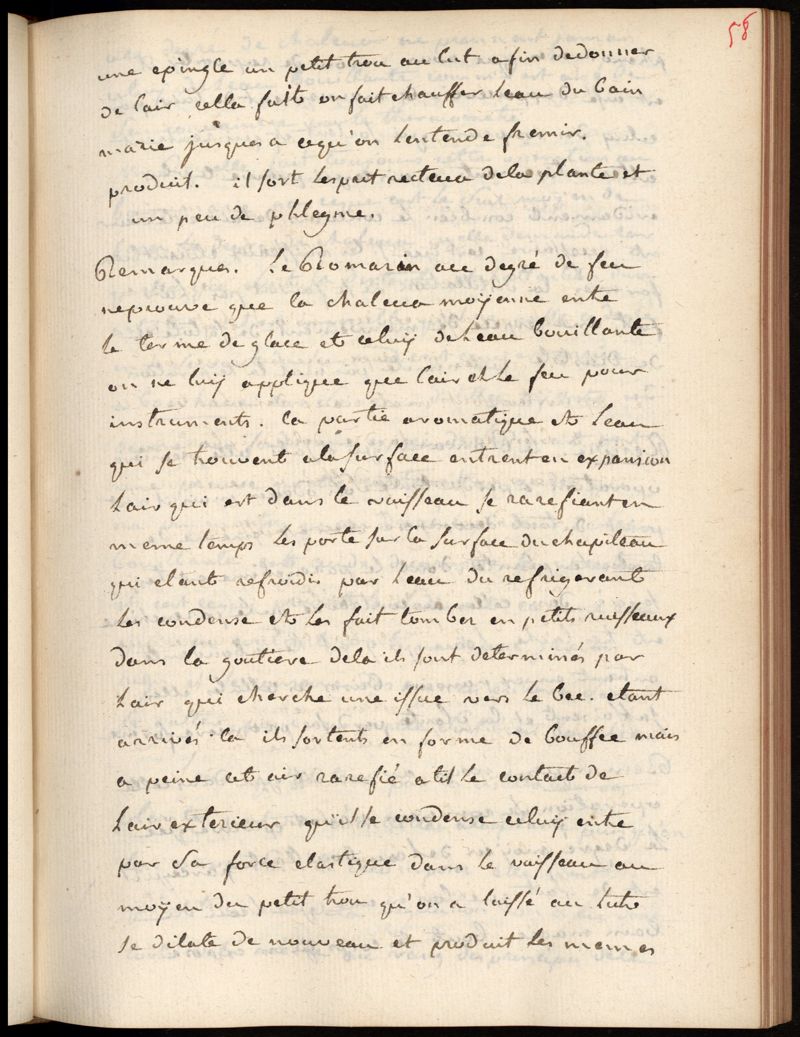 58
une epingle un petit trou au lut afin dedonner
de lair cella fait on fait chauffer leau du bain
marie jusques a cequ'on lentende fremir.
produit. il sort lesprit recteur dela plante et
un peu de phlegme.
Remarques. le Romarin a ce degré de feu
neprouve que la chaleur moÿenne entre
le terme de glace et celuÿ de leau bouillante
on ne luÿ applique que lair et le feu pour
instruments. la partie aromatique et leau
qui se trouvent alasurface entrent en expansion
lair qui est dans le vaisseau se rarefiant en
meme temps les porte sur la surface du chapiteau
qui etant refroidis par leau du refrigerant
les condense et les fait tomber en petits ruisseaux
dans la goutiere dela ils sont determinés par
lair qui cherche une issue vers le bec. etant
arrivés la ils sortent en forme de bouffée mais
a peine cet air rarefié atil le contact de
lair exterieur qu'il se condense celuÿ entre
par sa force elastique dans le vaisseau au
moÿen du petit trou qu'on a laissé au lut
se dilate de nouveau et produit les memes